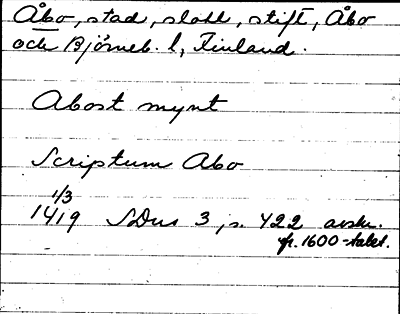 Åbo, stad, slott, stift, Åbo
och Björneb. l, Finland.
Abost mynt
Scriptum Abo
1/3
1419 SDns 3, s. 422 avskr.
fr. 1600-talet.